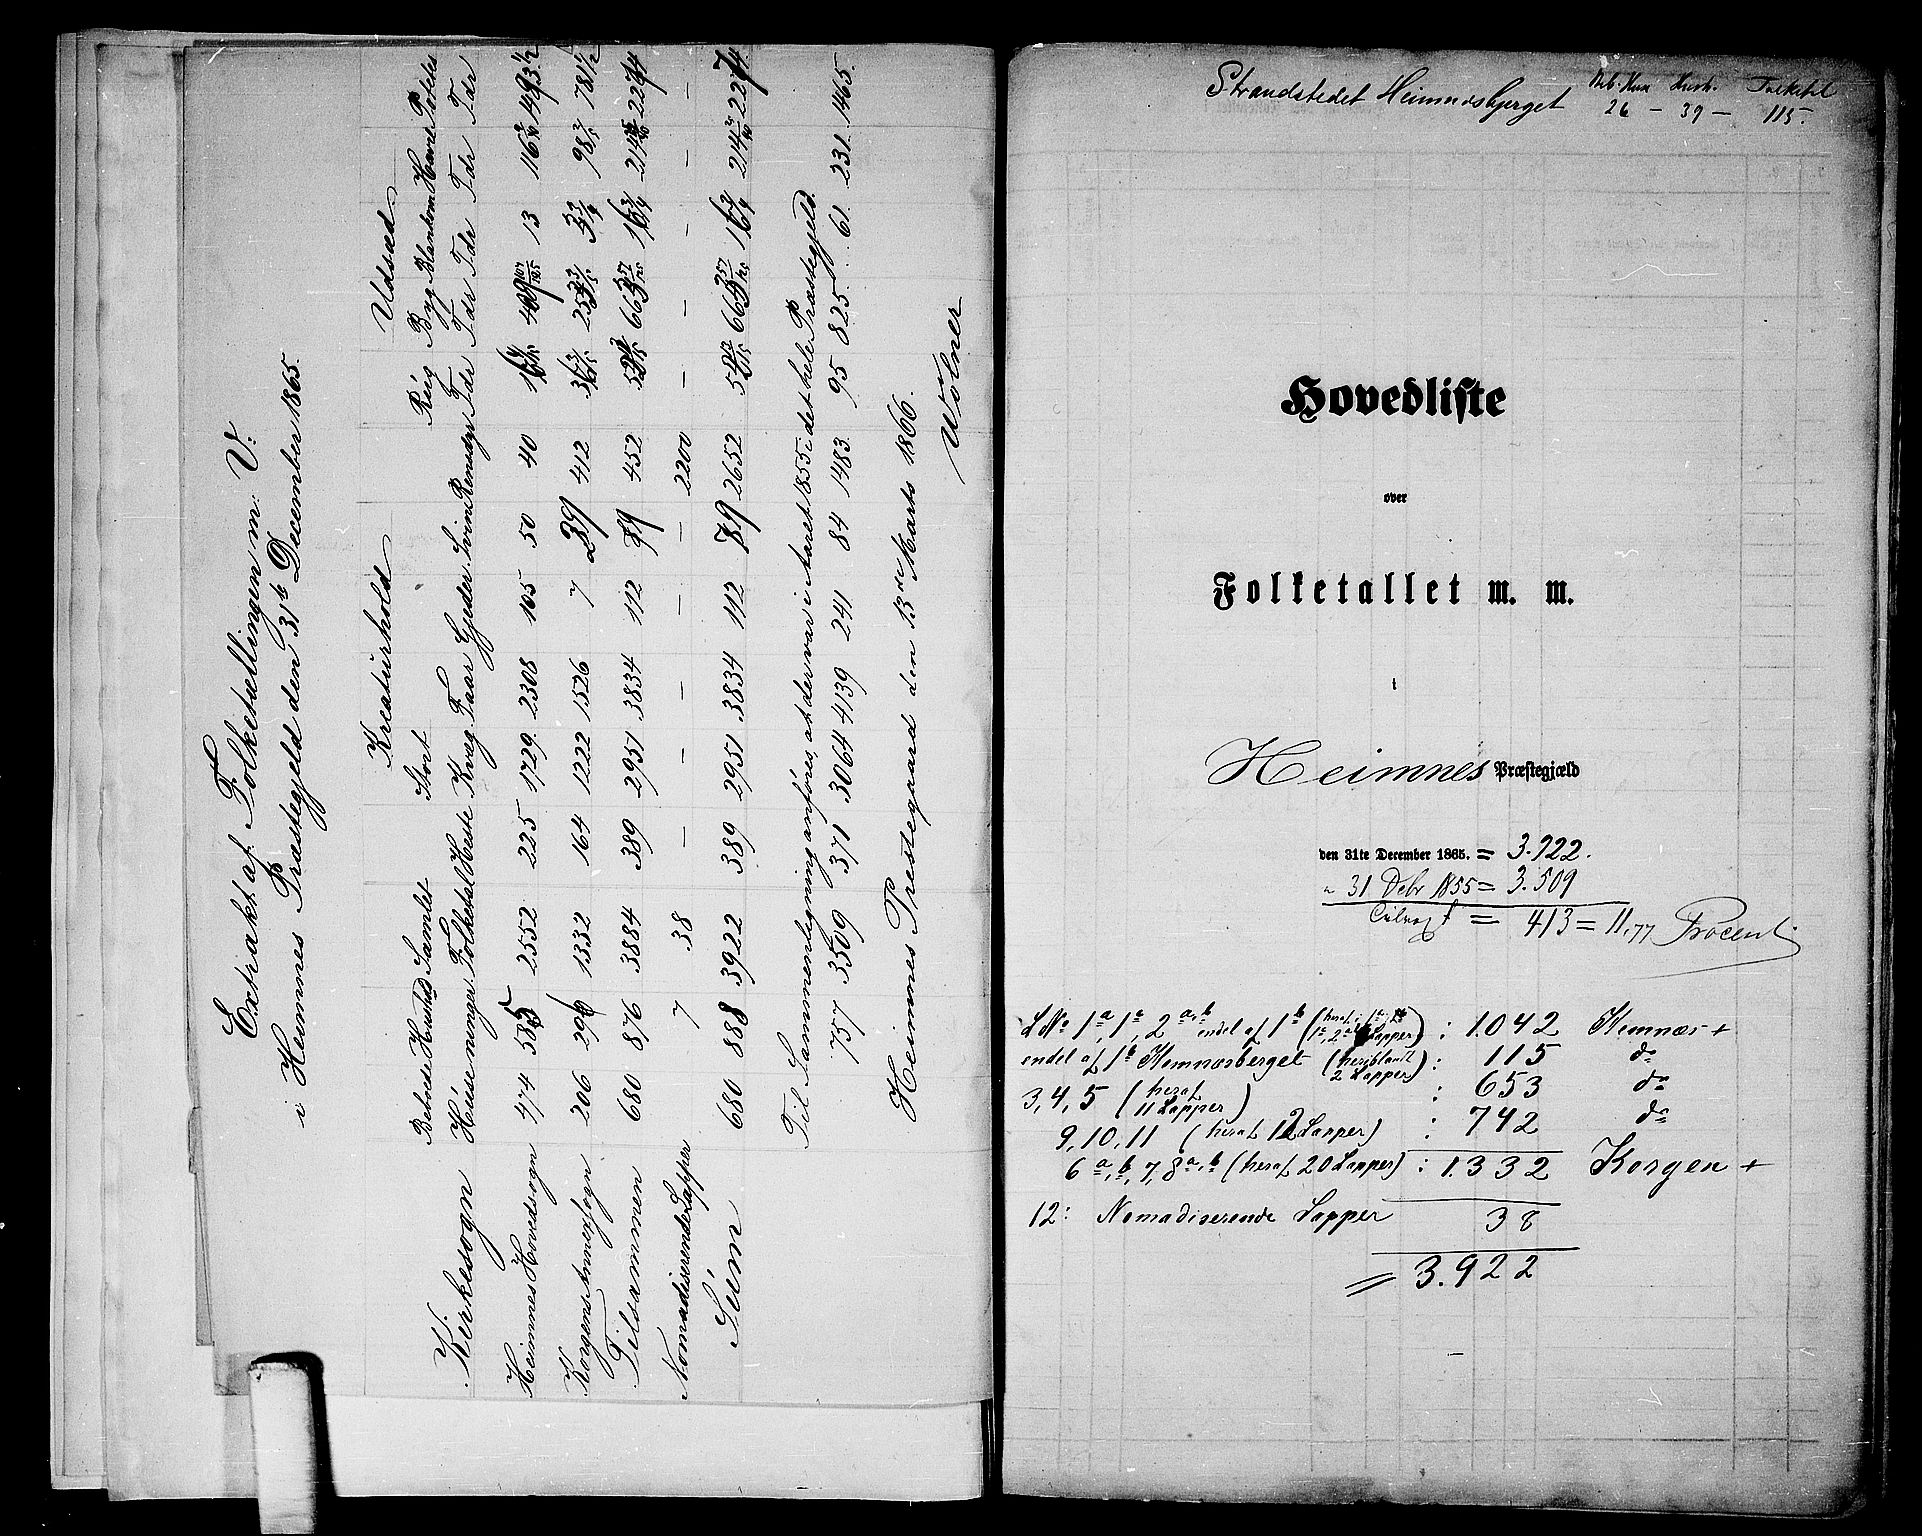 Extrakt af Folketællingen m. V.
i Heimnes Præstegjeld den 31te December 1865.
Kreaturhold Udsæd
Beboede Hushold Samlet Stort Rüg Byg Blankorn Havre Potetes
Kirkesogn Huse ninger Folketal Heste Kvæg Faar Gjeder Svin Rensdyr Tdr Tdr Tdr Tdr Tdr
Heimnes Hovedsogn 474 585 2552 225 1729 2308 105 50 40 13 1493½
Korgens Annexsogn 206 1332 164 1222 1526 7 39 412 781½
Tilsammen 680 876 3884 389 2951 3834 112 452
Nomadiserende Lapper 7 38 — — — — — 2200 — — — — —
Süm 680 888 3922 389 2951 3834 112 89 2652
Til Sammenligning anföres, at der var i Aaret 1855 i det hele Præstegjeld.
757 3509 371 3064 4139 241 84 1483 95 825 61 231 1465.
Heimnes Prestegaard den 13de Marts 1866.
Wolner
Strandstedet Heimnesbjerget Beb. Hus Hush. Folketal
26 — 39 — 115.
Hovedliste
over
Folketallet m. m.
i
Heimnes Præstegjæld
den 31te December 1865. = 3.922.
" 31 Debr 1855 = 3.509
Tilvæxt = 413 = 11,77 Procent
L No 1a, 1a, 2a,b endel af 1b (heraf Lapper) : 1.042 Hemnæs +
endel af 1b Hemnæsberget (heriblandt 2 Lapper) : 115 do
3, 4, 5 (heraf 11 Lapper) : 653 do
9, 10, 11 (heraf 12 Lapper) : 742 do
6a,b, 7, 8a,b (heraf 20 Lapper) : 1.332 Korgen +
12: Nomadiserende Lapper 38
= 3.922